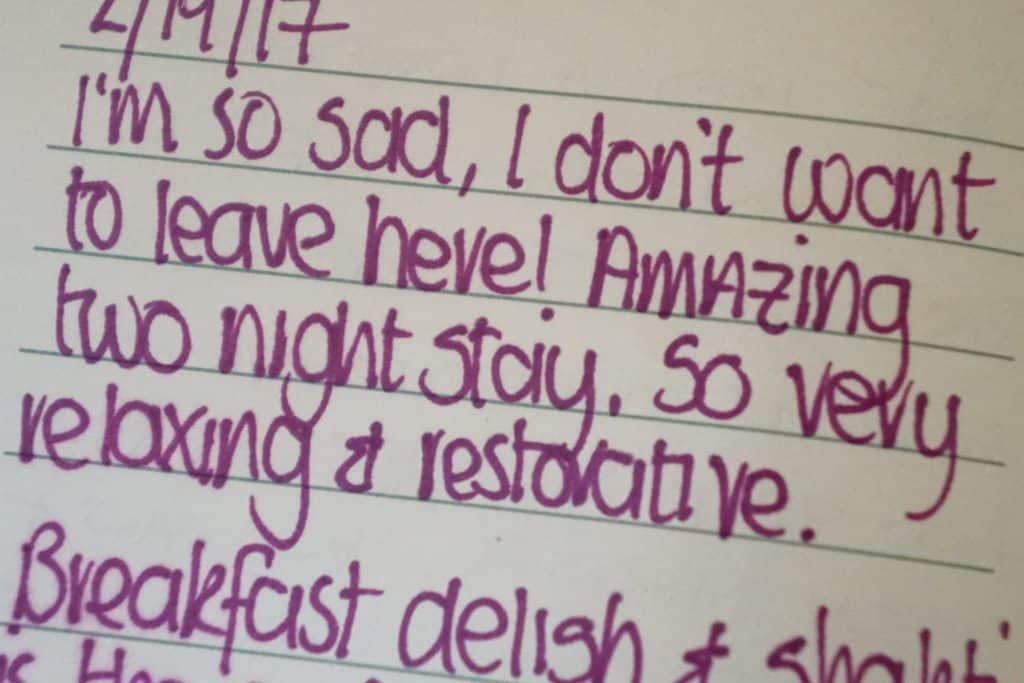 2/19/17
I'm so sad, I don't want
to leave here! Amazing
two night stay. So very
relaxing & restorative.
Breakfast delish &